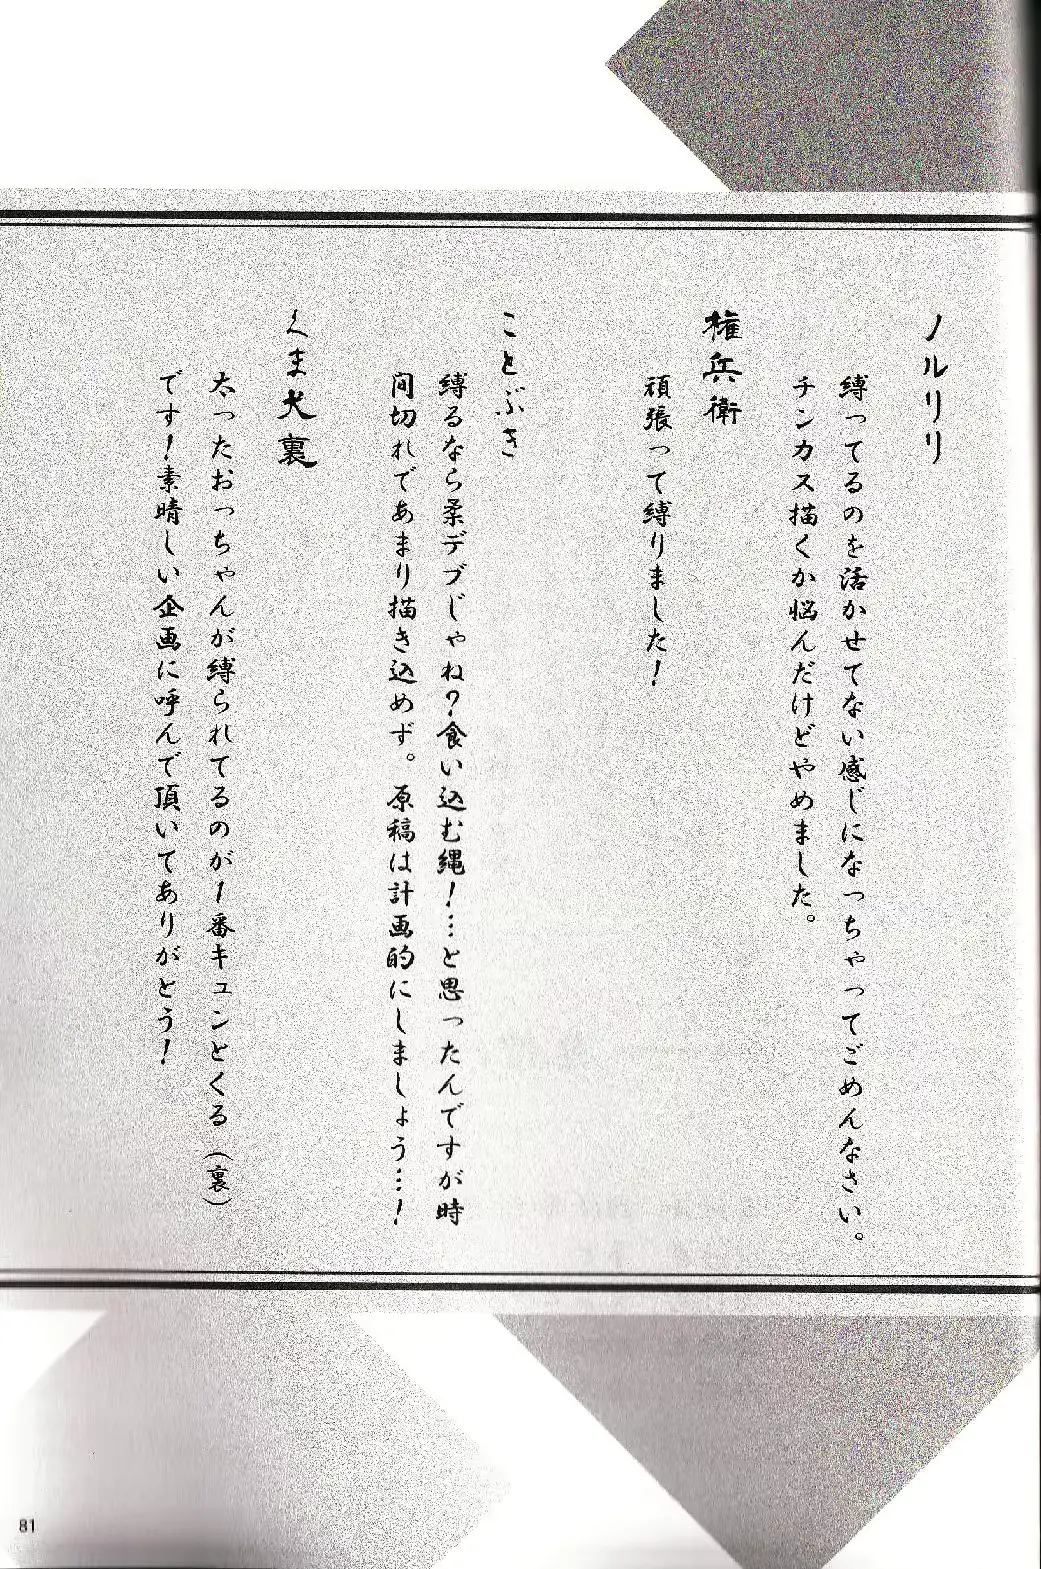 ノルリリ
縛ってるのを活かせてない感じになっちゃってごめんなさい。
チンカス描くか悩んだけどやめました。
権兵衛
頑張って縛りました！
ことぶき
縛るなら柔デブじゃね？食い込む縄！…と思ったんですが時
間切れであまり描き込めず。原稿は計画的にしましょう…！
くま犬裏
太ったおっちゃんが縛られてるのが1番キュンとくる（裏）
です！素晴しい企画に呼んで頂いてありがとう！
81